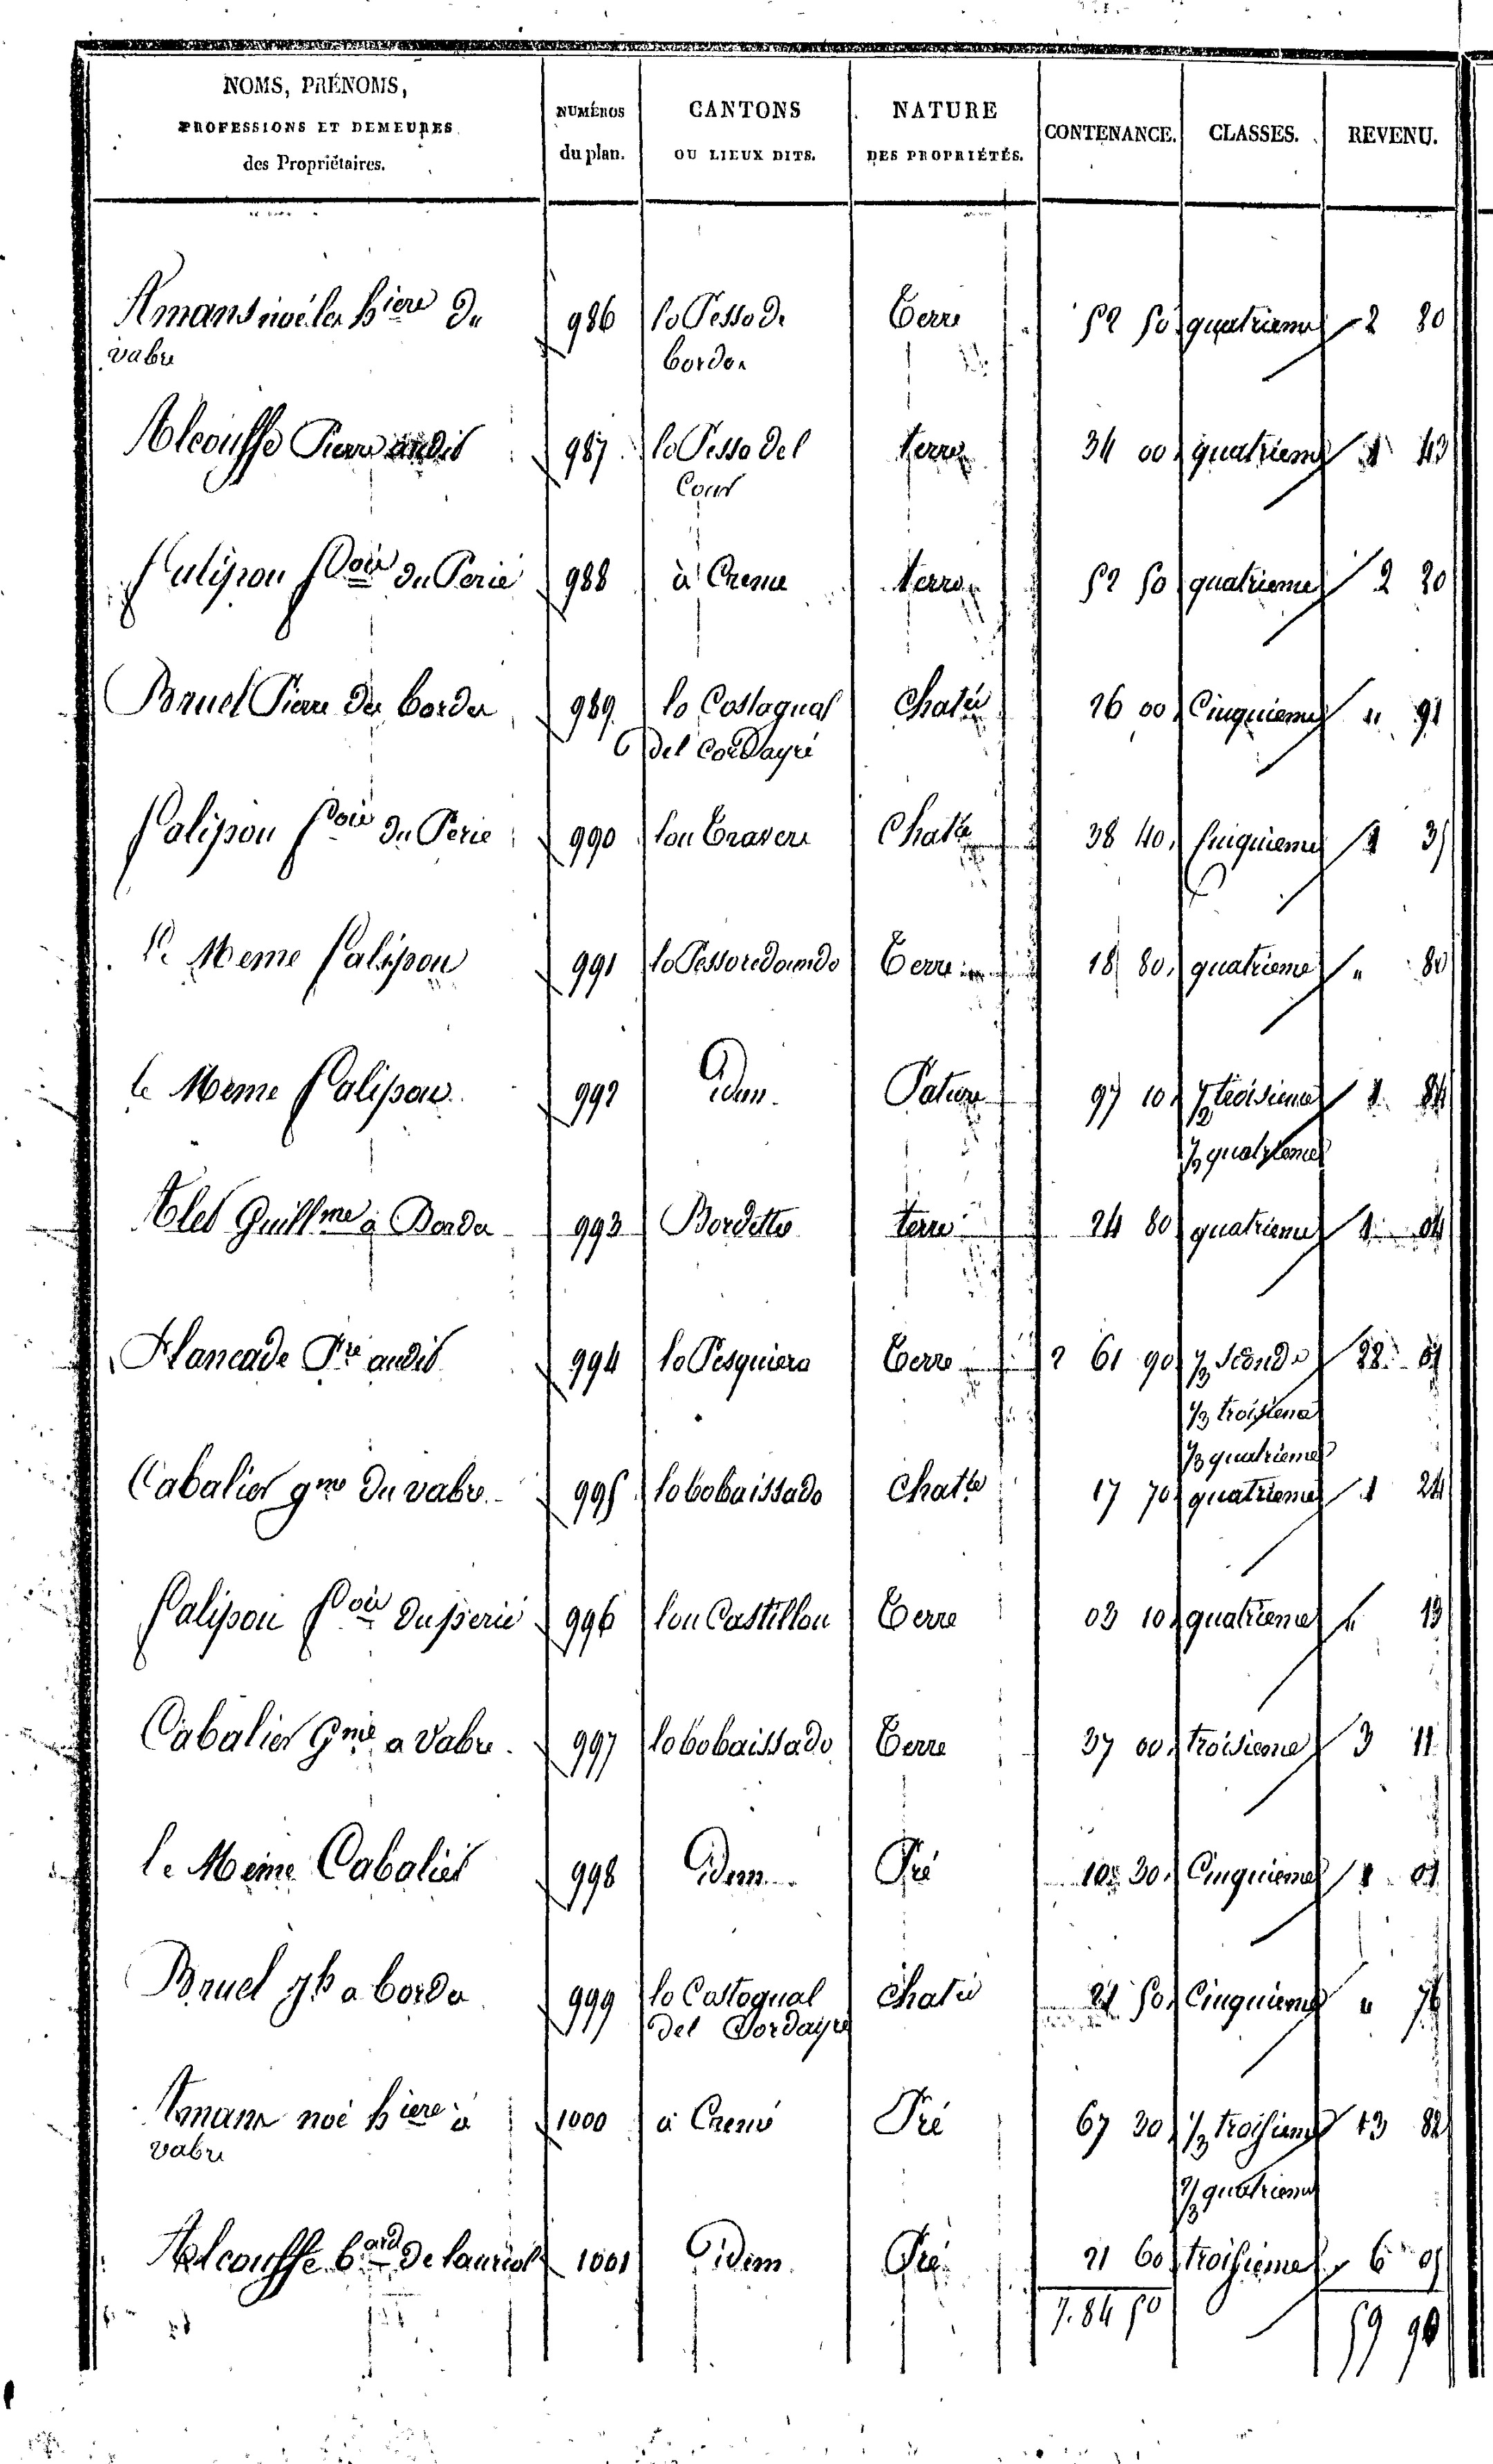 NOMS, PRÉNOMS, PROFESSIONS ET DEMEURES des Propriétaires. NUMÉROS du plan. CANTONS OU LIEUX DITS. NATURE DES PROPRIÉTÉS. CONTENANCE. CLASSES. REVENU.
Amans noé les hiere Du 986 lo Pesso De Terre 52 50 quatrieme 2 20
vabre bordes
Alcouffe Pierre audit 987 lo Pesso Del 34 00 quatrieme 1 43
terre
Couol
Palipou fois du Perié 988 à Creme terre 52 50 quatrieme 2 20
Bruel Pierre Des bordes 989 lo Costagual Chatie 26 00 Cinquieme " 91
del Cordayré
Palipou fois du Perie 990 lou Travers Chatie 38 40 Cinquieme 1 35
le Meme Palipou 991 lo Pesso redoundo Terre 18 80 quatrieme " 80
le Meme Palipou 992 Idem Pature 97 10 1/2 troisieme 1 84
1/2 quatrieme
Alet Guillme à Bordes 993 Bordetto terre 24 80 quatrieme 1 04
Flancade Pre audit 994 lo Pesquiero Terre 2 61 90 1/3 seconde 22
1/3 troisieme
1/3 quatrieme
Cabalier gme Du vabre 995 lo bobaissado Chatie 17 70 quatrieme 1 24
Palipou fois du perié 996 lou Castillou Terre 03 10 quatrieme " 13
Cabalier Gme a Vabre 997 lo bobaissado Terre 37 00 troisieme 3 11
le Meme Cabalier 998 Idem Pré 10 30 Cinquieme 1 03
Bruel jh a bordes 999 lo Costogual Chatie 21 50 Cinquieme " 76
del Cordayre
Amans noé hiere à 1000 à Creme Pré 67 30 1/3 troisieme 13 82
vabre 2/3 quatrieme
Alcouffe bard De lauriol 1001 Idem Pré 21 60 troisieme 6 05
7.84 50 59 90